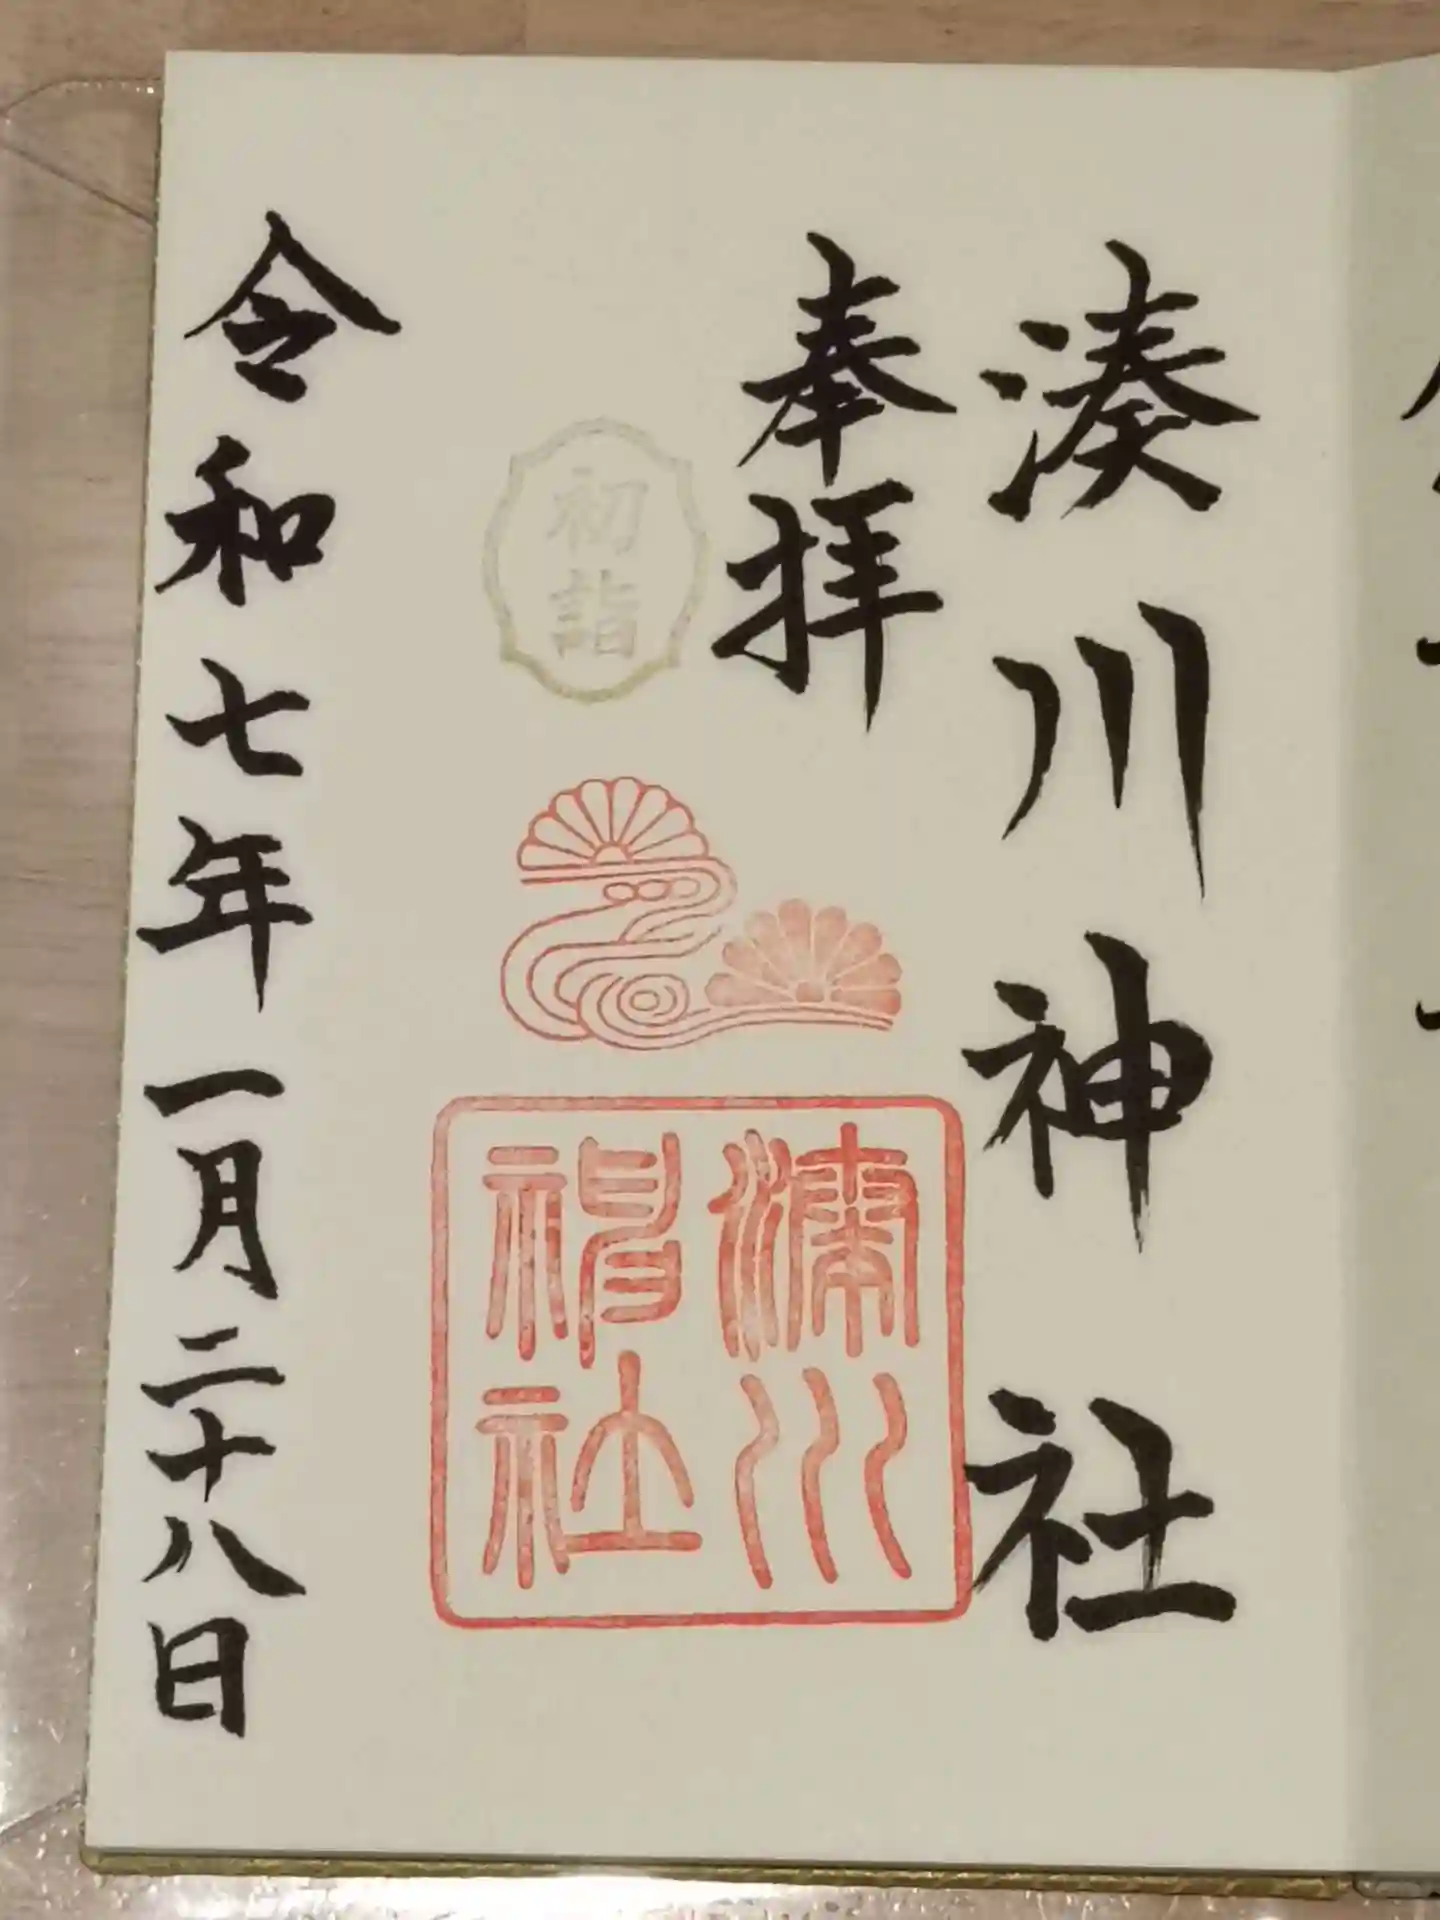 湊川神社
奉拝
初詣
湊川
神社
令和七年一月二十八日